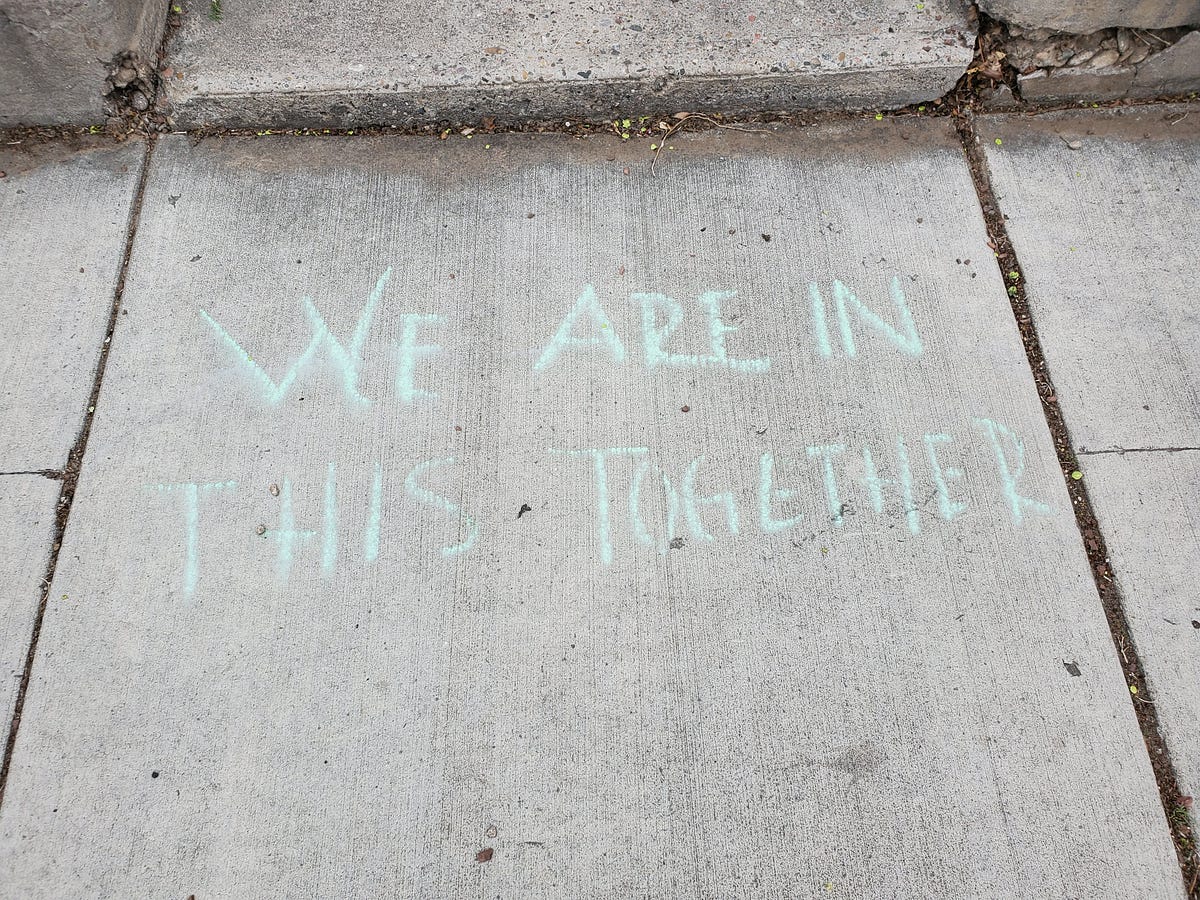 WE ARE IN
THIS TOGETHER